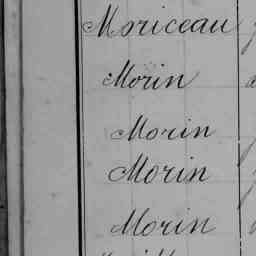 Moriceau
Morin
Morin
Morin
Morin